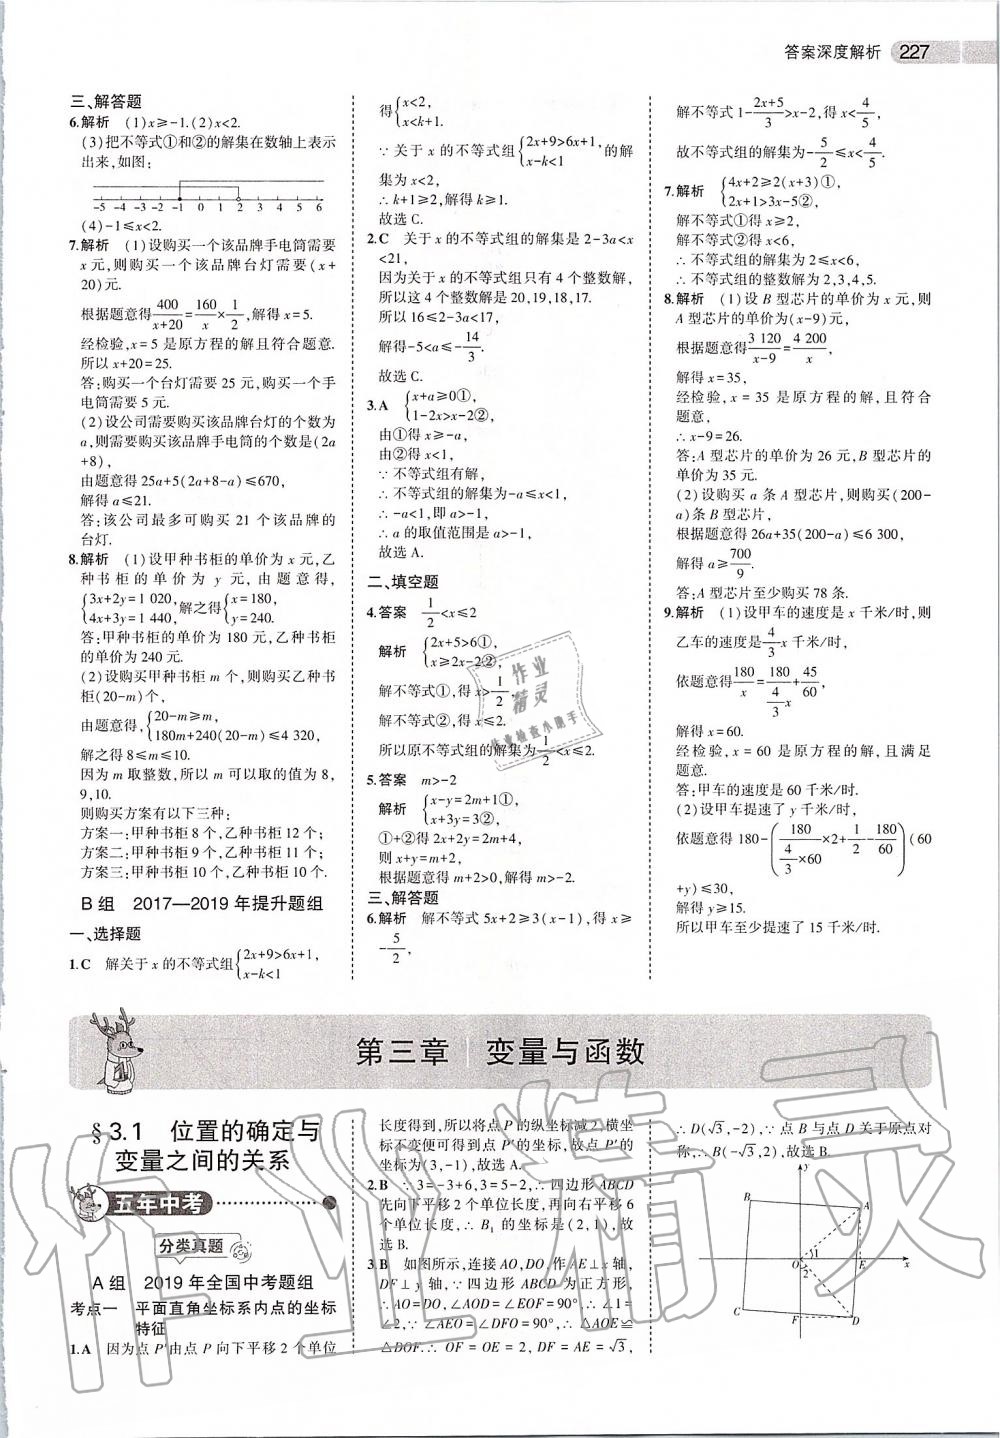 答案深度解析 227
三、解答题
6.解析 (1)x≥-1.(2)x<2.
(3)把不等式①和②的解集在数轴上表示
出来,如图:
-5 -4 -3 -2 -1 0 1 2 3 4 5 6
(4)-1≤x<2.
7.解析 (1)设购买一个该品牌手电筒需要
x元,则购买一个该品牌台灯需要(x+
20)元.
根据题意得400/(x+20)=160/x×1/2,解得x=5.
经检验,x=5是原方程的解且符合题意.
所以x+20=25.
答:购买一个台灯需要25元,购买一个手
电筒需要5元.
(2)设公司需要购买该品牌台灯的个数为
a,则需要购买该品牌手电筒的个数是(2a
+8),
由题意得25a+5(2a+8-a)≤670,
解得a≤21.
答:该公司最多可购买21个该品牌的
台灯.
8.解析 (1)设甲种书柜的单价为x元,乙
种书柜的单价为y元,由题意得,
{3x+2y=1 020, 解之得{x=180,
4x+3y=1 440, y=240.
答:甲种书柜的单价为180元,乙种书柜
的单价为240元.
(2)设购买甲种书柜m个,则购买乙种书
柜(20-m)个,
由题意得,{20-m≥m,
180m+240(20-m)≤4 320,
解之得8≤m≤10.
因为m取整数,所以m可以取的值为8,
9,10.
则购买方案有以下三种:
方案一:甲种书柜8个,乙种书柜12个;
方案二:甲种书柜9个,乙种书柜11个;
方案三:甲种书柜10个,乙种书柜10个.
B组 2017—2019年提升题组
一、选择题
1.C 解关于x的不等式组{2x+9>6x+1,
x-k<1
得{x<2,
x<k+1.
∵关于x的不等式组{2x+9>6x+1, 的解
x-k<1
集为x<2,
∴k+1≥2,解得k≥1.
故选C.
2.C 关于x的不等式组的解集是2-3a<x
<21,
因为关于x的不等式组只有4个整数解,
所以这4个整数解是20,19,18,17.
所以16≤2-3a<17,
解得-5<a≤-14/3.
故选C.
3.A {x+a≥0①,
1-2x>x-2②,
由①得x≥-a,
由②得x<1,
∵不等式组有解,
∴不等式组的解集为-a≤x<1,
∴-a<1,即a>-1,
∴a的取值范围是a>-1.
故选A.
二、填空题
4.答案 1/2<x≤2
解析 {2x+5>6①,
x≥2x-2②,
解不等式①,得x>1/2.
解不等式②,得x≤2.
所以原不等式组的解集为1/2<x≤2.
5.答案 m>-2
解析 {x-y=2m+1①,
x+3y=3②,
①+②得2x+2y=2m+4,
则x+y=m+2,
根据题意得m+2>0,解得m>-2.
三、解答题
6.解析 解不等式5x+2≥3(x-1),得x≥
-5/2,
解不等式1-(2x+5)/3>x-2,得x<4/5,
故不等式组的解集为-5/2≤x<4/5.
7.解析 {4x+2≥2(x+3)①,
2x+1>3x-5②,
解不等式①得x≥2,
解不等式②得x<6,
∴不等式组的解集为2≤x<6,
∴不等式组的整数解为2,3,4,5.
8.解析 (1)设B型芯片的单价为x元,则
A型芯片的单价为(x-9)元,
根据题意得3 120/(x-9)=4 200/x,
解得x=35,
经检验,x=35是原方程的解,且符合
题意,
∴x-9=26.
答:A型芯片的单价为26元,B型芯片的
单价为35元.
(2)设购买a条A型芯片,则购买(200-
a)条B型芯片,
根据题意得26a+35(200-a)≤6 300,
解得a≥700/9.
答:A型芯片至少购买78条.
9.解析 (1)设甲车的速度是x千米/时,则
乙车的速度是4/3x千米/时,
依题意得180/x=180/(4/3x)+45/60,
解得x=60.
经检验,x=60是原方程的解,且满足
题意.
答:甲车的速度是60千米/时.
(2)设甲车提速了y千米/时,
依题意得180-(180/(4/3×60)×2+1/2-180/60)(60
+y)≤30,
解得y≥15.
所以甲车至少提速了15千米/时.
第三章 变量与函数
§3.1 位置的确定与
变量之间的关系
五年中考
分类真题
A组 2019年全国中考题组
考点一 平面直角坐标系内点的坐标
特征
1.A 因为点P'由点P向下平移2个单位
长度得到,所以将点P的纵坐标减2,横坐
标不变便可得到点P'的坐标,故点P'的
坐标为(3,-1),故选A.
2.B ∵3=-3+6,3=5-2,∴四边形ABCD
先向下平移2个单位长度,再向右平移6
个单位长度,∴B₁的坐标是(2,1),故
选B.
3.B 如图所示,连接AO,DO,作AE⊥x轴,
DF⊥y轴,∵四边形ABCD为正方形,
∴AO=DO,∠AOD=∠EOF=90°,∴∠1=
∠2,∵∠AEO=∠DFO=90°,∴△AOE≌
△DOF.∴OF=OE=2,DF=AE=√3,
∴D(√3,-2),∵点B与点D关于原点对
称,∴B(-√3,2),故选B.
y
B
A
1
O
2
E
x
C
F
D
作业
精灵
作业检查小助手
作业精灵